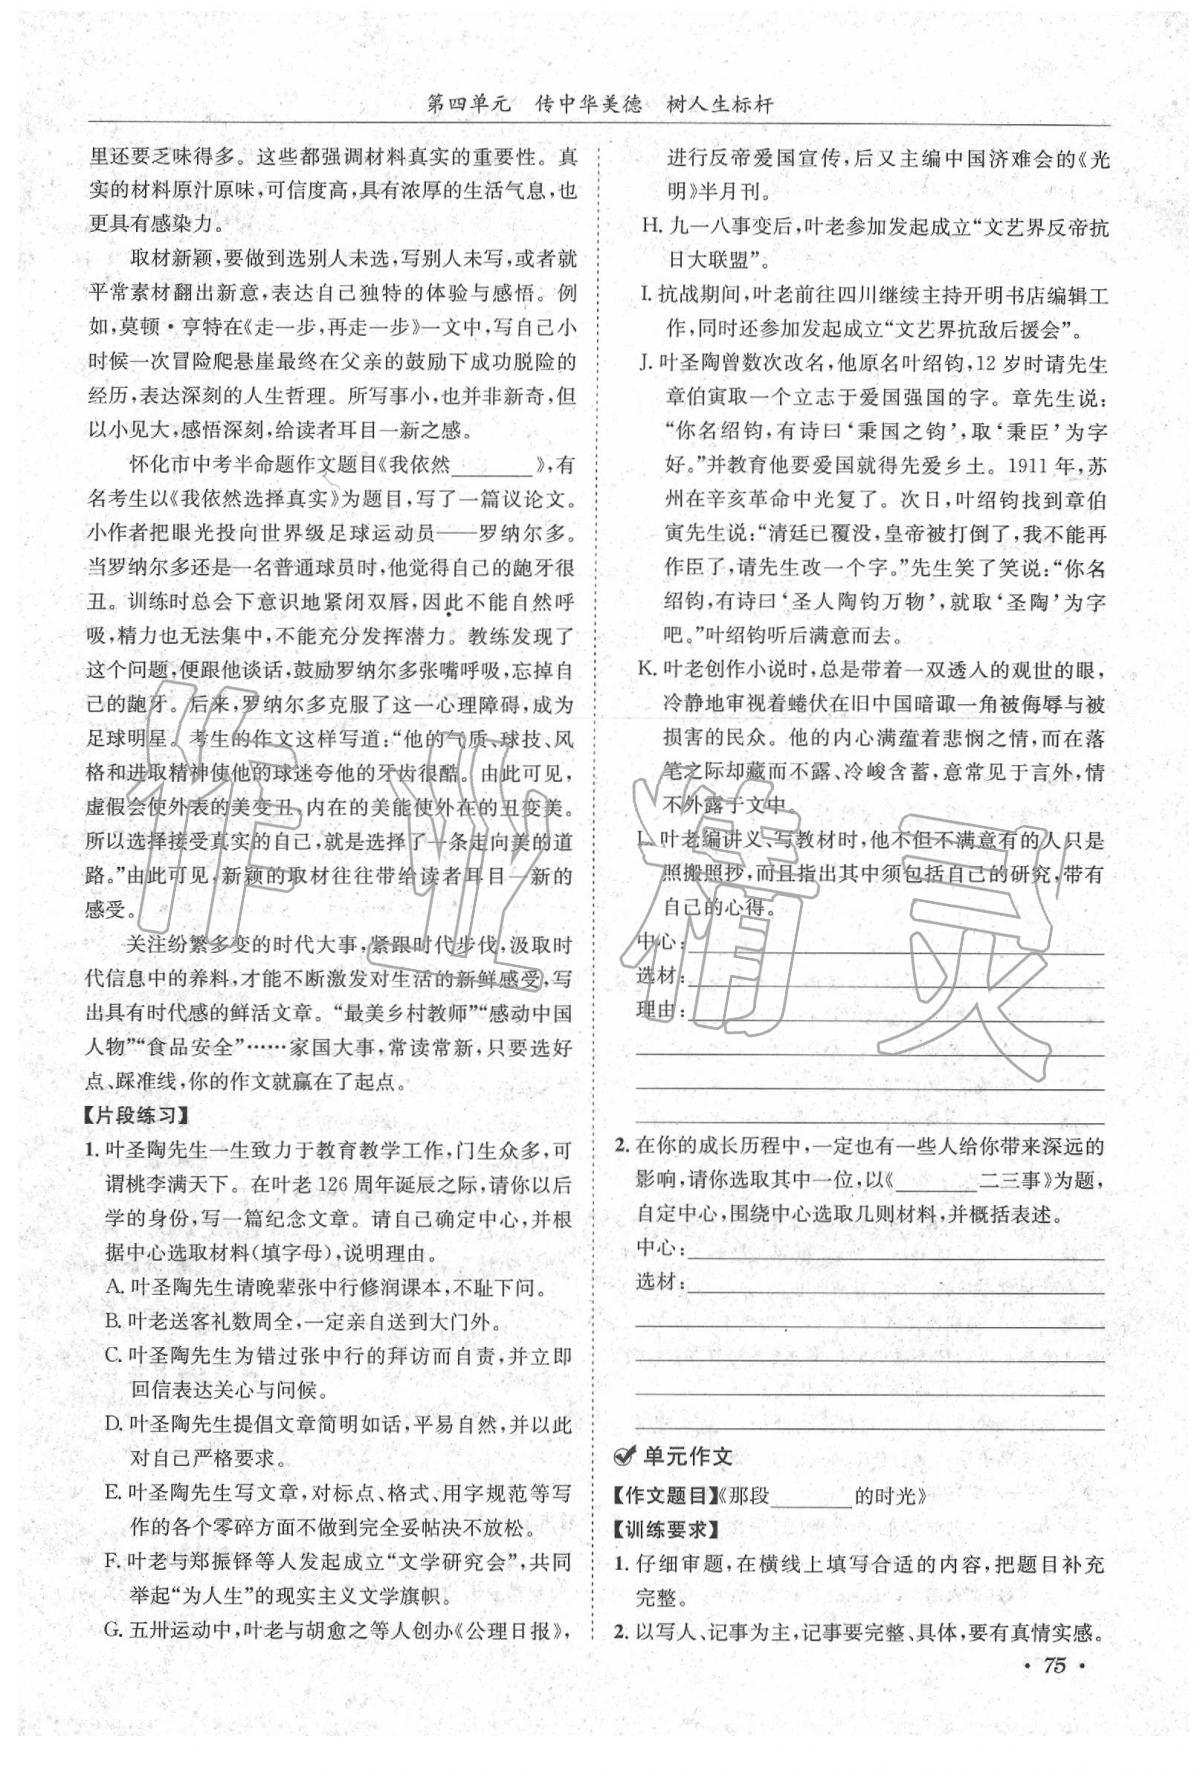 第四单元　传中华美德　树人生标杆
里还要乏味得多。这些都强调材料真实的重要性。真
实的材料原汁原味,可信度高,具有浓厚的生活气息,也
更具有感染力。
取材新颖,要做到选别人未选,写别人未写,或者就
平常素材翻出新意,表达自己独特的体验与感悟。例
如,莫顿·亨特在《走一步,再走一步》一文中,写自己小
时候一次冒险爬悬崖最终在父亲的鼓励下成功脱险的
经历,表达深刻的人生哲理。所写事小,也并非新奇,但
以小见大,感悟深刻,给读者耳目一新之感。
怀化市中考半命题作文题目《我依然________》,有
名考生以《我依然选择真实》为题目,写了一篇议论文。
小作者把眼光投向世界级足球运动员——罗纳尔多。
当罗纳尔多还是一名普通球员时,他觉得自己的龅牙很
丑。训练时总会下意识地紧闭双唇,因此不能自然呼
吸,精力也无法集中,不能充分发挥潜力。教练发现了
这个问题,便跟他谈话,鼓励罗纳尔多张嘴呼吸,忘掉自
己的龅牙。后来,罗纳尔多克服了这一心理障碍,成为
足球明星。考生的作文这样写道:“他的气质、球技、风
格和进取精神使他的球迷夸他的牙齿很酷。由此可见,
虚假会使外表的美变丑,内在的美能使外在的丑变美。
所以选择接受真实的自己,就是选择了一条走向美的道
路。”由此可见,新颖的取材往往带给读者耳目一新的
感受。
关注纷繁多变的时代大事,紧跟时代步伐,汲取时
代信息中的养料,才能不断激发对生活的新鲜感受,写
出具有时代感的鲜活文章。“最美乡村教师”“感动中国
人物”“食品安全”……家国大事,常读常新,只要选好
点、踩准线,你的作文就赢在了起点。
【片段练习】
1. 叶圣陶先生一生致力于教育教学工作,门生众多,可
谓桃李满天下。在叶老 126 周年诞辰之际,请你以后
学的身份,写一篇纪念文章。请自己确定中心,并根
据中心选取材料(填字母),说明理由。
A. 叶圣陶先生请晚辈张中行修润课本,不耻下问。
B. 叶老送客礼数周全,一定亲自送到大门外。
C. 叶圣陶先生为错过张中行的拜访而自责,并立即
回信表达关心与问候。
D. 叶圣陶先生提倡文章简明如话,平易自然,并以此
对自己严格要求。
E. 叶圣陶先生写文章,对标点、格式、用字规范等写
作的各个零碎方面不做到完全妥帖决不放松。
F. 叶老与郑振铎等人发起成立“文学研究会”,共同
举起“为人生”的现实主义文学旗帜。
G. 五卅运动中,叶老与胡愈之等人创办《公理日报》,
进行反帝爱国宣传,后又主编中国济难会的《光
明》半月刊。
H. 九一八事变后,叶老参加发起成立“文艺界反帝抗
日大联盟”。
I. 抗战期间,叶老前往四川继续主持开明书店编辑工
作,同时还参加发起成立“文艺界抗敌后援会”。
J. 叶圣陶曾数次改名,他原名叶绍钧,12 岁时请先生
章伯寅取一个立志于爱国强国的字。章先生说:
“你名绍钧,有诗曰‘秉国之钧’,取‘秉臣’为字
好。”并教育他要爱国就得先爱乡土。1911 年,苏
州在辛亥革命中光复了。次日,叶绍钧找到章伯
寅先生说:“清廷已覆没,皇帝被打倒了,我不能再
作臣了,请先生改一个字。”先生笑了笑说:“你名
绍钧,有诗曰‘圣人陶钧万物’,就取‘圣陶’为字
吧。”叶绍钧听后满意而去。
K. 叶老创作小说时,总是带着一双透人的观世的眼,
冷静地审视着蜷伏在旧中国暗诹一角被侮辱与被
损害的民众。他的内心满蕴着悲悯之情,而在落
笔之际却藏而不露、冷峻含蓄,意常见于言外,情
不外露于文中。
L. 叶老编讲义、写教材时,他不但不满意有的人只是
照搬照抄,而且指出其中须包括自己的研究,带有
自己的心得。
中心:
选材:
理由:
2. 在你的成长历程中,一定也有一些人给你带来深远的
影响,请你选取其中一位,以《________二三事》为题,
自定中心,围绕中心选取几则材料,并概括表述。
中心:
选材:
单元作文
【作文题目】《那段________的时光》
【训练要求】
1. 仔细审题,在横线上填写合适的内容,把题目补充
完整。
2. 以写人、记事为主,记事要完整、具体,要有真情实感。
· 75 ·
作业精灵